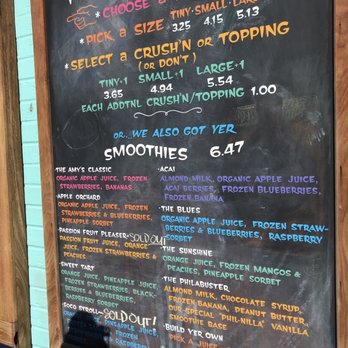 *CHOOSE A
*PICK A SIZE TINY· SMALL· LARGE
3.25 4.15 5.13
*SELECT A CRUSH'N OR TOPPING
(OR DON'T)
TINY+1 SMALL+1 LARGE+1
3.65 4.94 5.54
EACH ADDTNL CRUSH'N/TOPPING 1.00
OR...WE ALSO GOT YER
SMOOTHIES 6.47
·THE AMY'S CLASSIC
ORGANIC APPLE JUICE, FROZEN
STRAWBERRIES, BANANAS
·APPLE ORCHARD
ORGANIC APPLE JUICE, FROZEN
STRAWBERRIES & BLUEBERRIES,
PINEAPPLE SORBET
·PASSION FRUIT PLEASER ·SOLD OUT
PASSION FRUIT JUICE, ORANGE
JUICE, FROZEN STRAWBERRIES &
PEACHES
·SWEET TART
ORANGE JUICE, PINEAPPLE JUICE,
FROZEN STRAWBERRIES, BLACK-
BERRIES & BLUEBERRIES,
RASPBERRY SORBET
·COCO STROLL ·SOLD OUT!
PINEAPPLE JUICE,
FROZEN
RASPBERRY
·ACAI
ALMOND MILK, ORGANIC APPLE JUICE,
ACAI BERRIES, FROZEN BLUEBERRIES,
FROZEN BANANA
·THE BLUES
ORGANIC APPLE JUICE, FROZEN STRAW-
BERRIES & BLUEBERRIES, RASPBERRY
SORBET
·THE SUNSHINE
ORANGE JUICE, FROZEN MANGOS &
PEACHES, PINEAPPLE SORBET
·THE PHILABUSTER
ALMOND MILK, CHOCOLATE SYRUP,
FROZEN BANANA, PEANUT BUTTER,
OUR SPECIAL "PHIL-NILLA" VANILLA
SMOOTHIE BASE
·BUILD YER OWN
PICK A JUICE